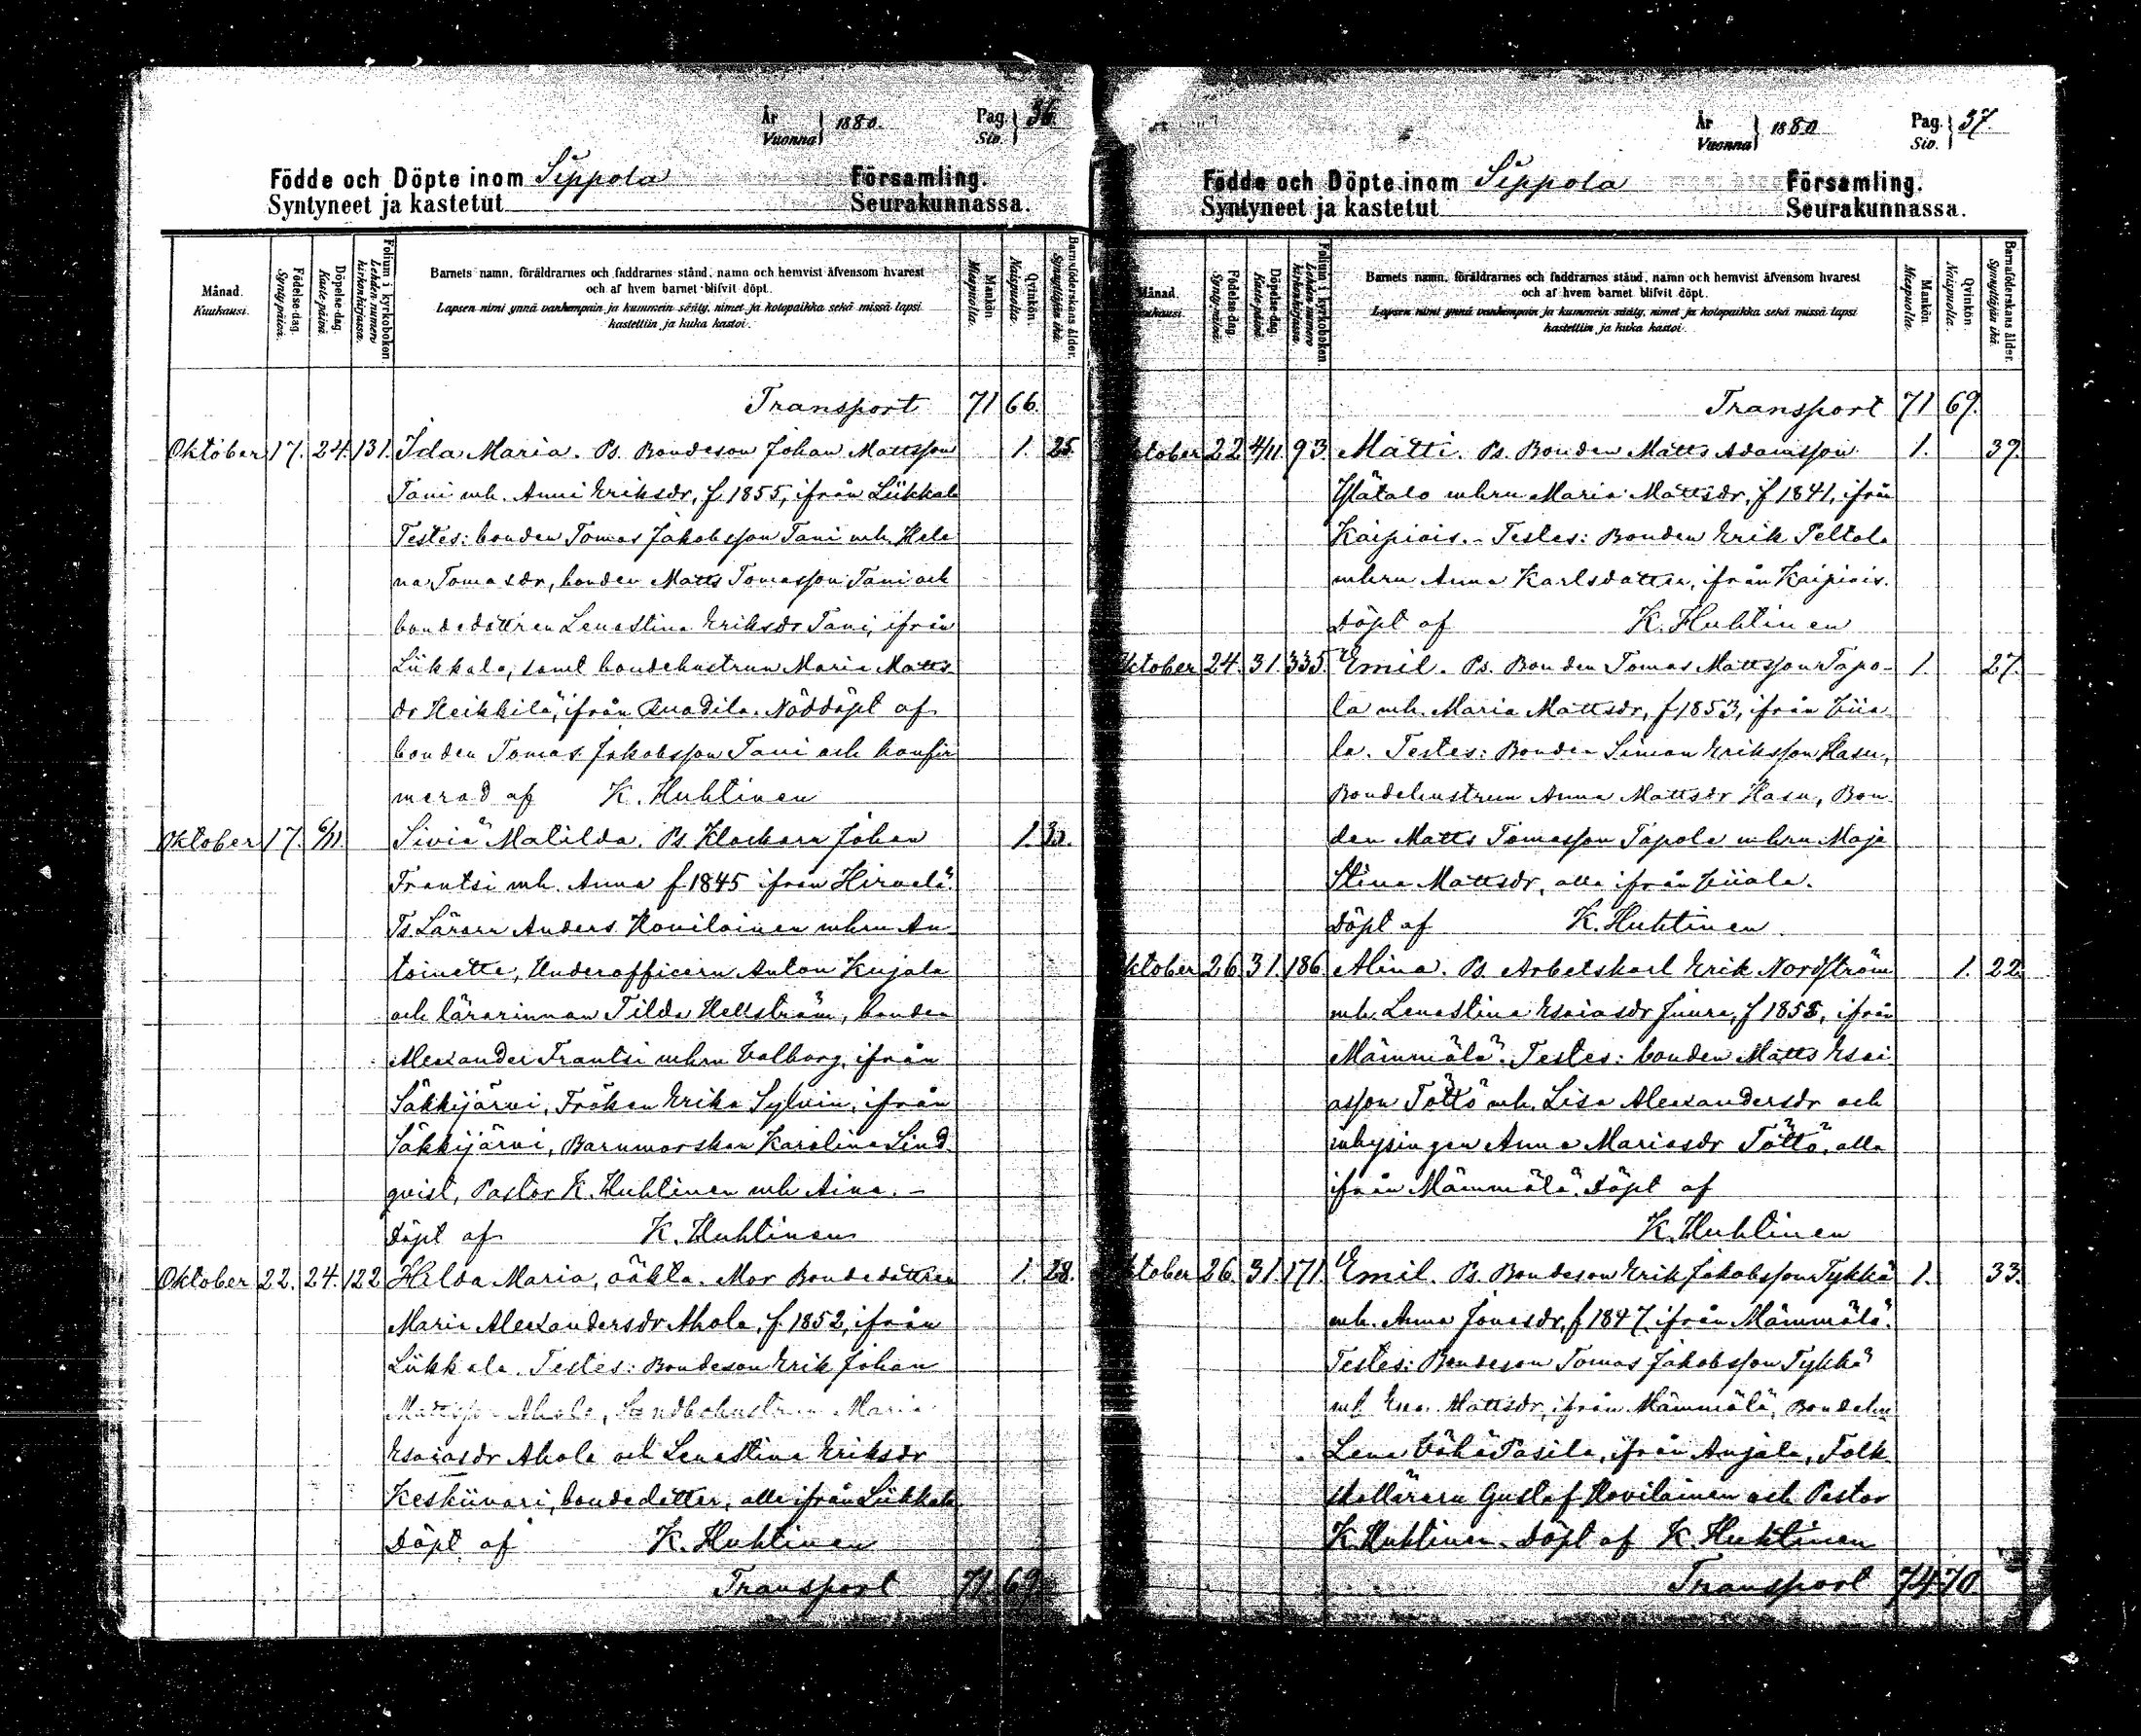 År 1880. Pag. 36.
Vuonna Siv.
Födde och Döpte inom Sippola Församling.
Syntyneet ja kastetut Seurakunnassa.
Månad.
Kuukausi.
Födelse-dag.
Synty-päivä.
Döpelse-dag.
Kaste-päivä.
Folium i kyrkoboken.
Lehden numero kirkonkirjassa.
Barnets namn, föräldrarnes och faddrarnes stånd, namn och hemvist äfvensom hvarest
och af hvem barnet blifvit döpt.
Lapsen nimi ynnä vanhempain ja kummein sääty, nimet ja kotopaikka sekä missä lapsi
kastettiin ja kuka kastoi.
Mankön.
Miespuolta.
Qvinkön.
Naispuolta.
Barnaföderskans ålder.
Synnyttäjän ikä.
Transport 71 66.
Oktober 17. 24. 131. Ida Maria. Ps. Bondeson Johan Mattsson 1. 25.
Tani mh. Anni Eriksdr, f 1855, ifrån Liikkala
Testes: bonden Tomas Jakobsson Tani mh. Hele
na Tomasdr, bonden Matts Tomasson Tani och
bondedottren Lenastina Eriksdr Tani, ifrån
Liikkala, samt bondehustrun Maria Matts-
dr Heikkilä, ifrån Ruadila. Nöddöpt af
bonden Tomas Jakobsson Tani och konfir
merad af K. Huhtinen
Oktober 17. 6/11. Siviä Matilda. Ps. Klockarn Johan 1. 35.
Frantsi mh. Anna f 1845 ifrån Hirvelä.
Ts. Läraren Anders Hovilainen mhru An
toinette, Underofficern Anton Kujala
och lärarinnan Tilda Hellström, bonden
Alexander Frantsi mhru Valborg, ifrån
Säkkijärvi, Fröken Erika Sylvin, ifrån
Säkkijärvi, Barnmorskan Karolina Lind
qvist, Pastor K. Huhtinen mh Aina. –
Döpt af K. Huhtinen
Oktober 22. 24. 122 Hilda Maria, oäkta. Mor Bondedottren 1. 28.
Maria Alexandersdr Ahola, f 1852, ifrån
Liikkala. Testes: Bondeson Erik Johan
Mattsson Ahola, Maria
Esaiasdr Ahola och Lenastina Eriksdr
Keskiivari, bondedotter, alla ifrån Liikkala
Döpt af K. Huhtinen
Transport 71 69
År 1880 Pag. 37.
Vuonna Siv.
Födde och Döpte inom Sippola Församling.
Syntyneet ja kastetut Seurakunnassa.
Månad.
Kuukausi.
Födelse-dag.
Synty-päivä.
Döpelse-dag.
Kaste-päivä.
Folium i kyrkoboken.
Lehden numero kirkonkirjassa.
Barnets namn, föräldrarnes och faddrarnes stånd, namn och hemvist äfvensom hvarest
och af hvem barnet blifvit döpt.
Lapsen nimi ynnä vanhempain ja kummein sääty, nimet ja kotopaikka sekä missä lapsi
kastettiin ja kuka kastoi.
Mankön
Miespuolta.
Qvinkön.
Naispuolta.
Barnaföderskans ålder.
Synnyttäjän ikä.
Transport 71 69.
ktober 22 4/11. 93. Matti. Ps. Bonden Matts Adamsson 1. 39.
Ylätalo mhru Maria Mattsdr, f 1841, ifrån
Kaipiais. – Testes: Bonden Erik Peltola
mhru Anna Karlsdotter, ifrån Kaipiais.
Döpt af K. Huhtinen
ktober 24. 31. 335. Emil. Ps. Bonden Tomas Mattsson Tapo- 1. 27.
la mh. Maria Mattsdr, f 1853, ifrån Viia
la. Testes: Bonden Simon Eriksson Hasu,
Bondehustrun Anna Mattsdr Hasu, Bon
den Matts Tomasson Tapola mhru Maja
Stina Mattsdr, alla ifrån Viiala.
Döpt af K. Huhtinen
ktober 26 31. 186 Alina. Ps. Arbetskarl Erik Nordström 1. 22.
mh. Lenastina Esaiasdr Juura, f 1858, ifrån
Mämmälä. Testes: bonden Matts Esai
asson Töttö mh. Lisa Alexandersdr och
inhysingen Anna Mariasdr Töttö, alla
ifrån Mämmälä. Döpt af
K. Huhtinen
ktober 26. 31. 171. Emil. Ps. Bondeson Erik Jakobsson Tykkä 1. 33.
mh. Anna Jonasdr, f 1847, ifrån Mämmälä.
Testes: Bondeson Tomas Jakobsson Tykkä
mh. Eva Mattsdr, ifrån Mämmälä, Bondehu
Lena Vähä Pasila, ifrån Anjala, Folk
skolläraren Gustaf Hovilainen och Pastor
K. Huhtinen. Döpt af K. Huhtinen
Transport 74 70